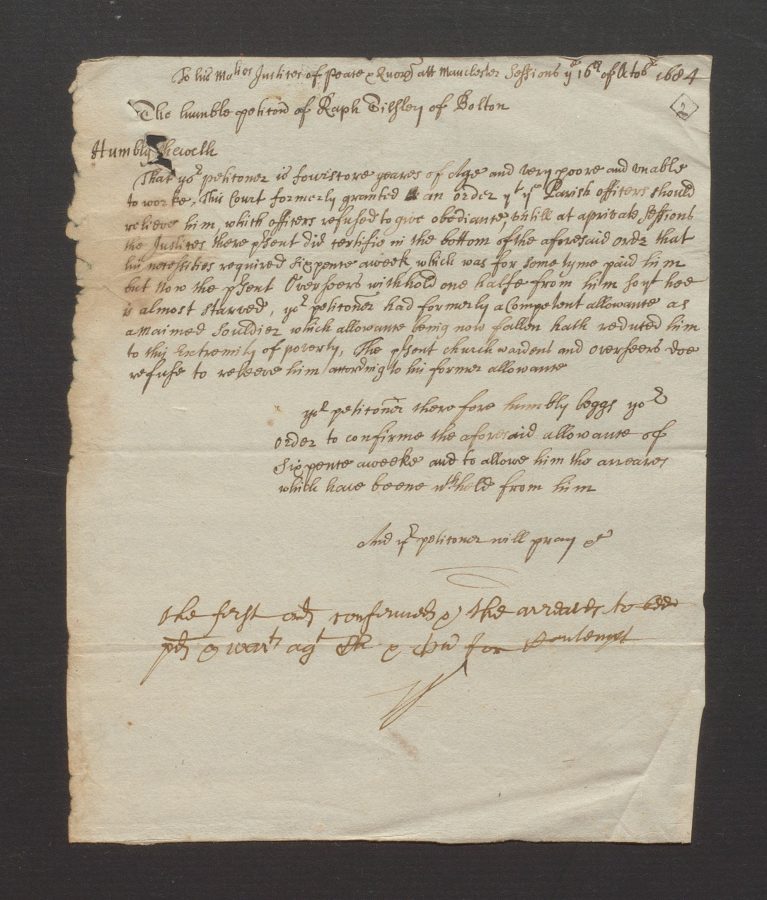 To his Maties Justices of Peace & Quorū att Manchester Sessions ye 16th of Octobr 1684
2
The humble peticon of Raph Tilsley of Bolton
Humbly Sheweth
That yor peticoner is fowrstore yeares of Age and very poore and unable
to worke, This Court formerly granted an order yt ye Parish officers should
releive him, which officers refused to give obediance, untill at a privat Sessions
the Justices there psent did certifie in the bottom of the aforesaid order that
his necessities required sixpence aweek which was for some tyme paid him
but Now the psent Overseers withhold one halfe from him soe yt hee
is almost starved, yor peticoner had formerly a Competent allowance as
a Maimed Souldier which allowance being now fallen hath reduced him
to this Extremity of poverty, The psent church wardens and overseers doe
refuse to releeve him according to his former allowance
yor peticoner therefore humbly beggs yor
order to confirme the aforesaid allowance of
Sixpence aweeke and to allowe him the arreares
which have beene wthheld from him
And yr peticoner will pray &c
the first ordr confirmed & the arreares to bee
pd & warrt agt & for Contempt